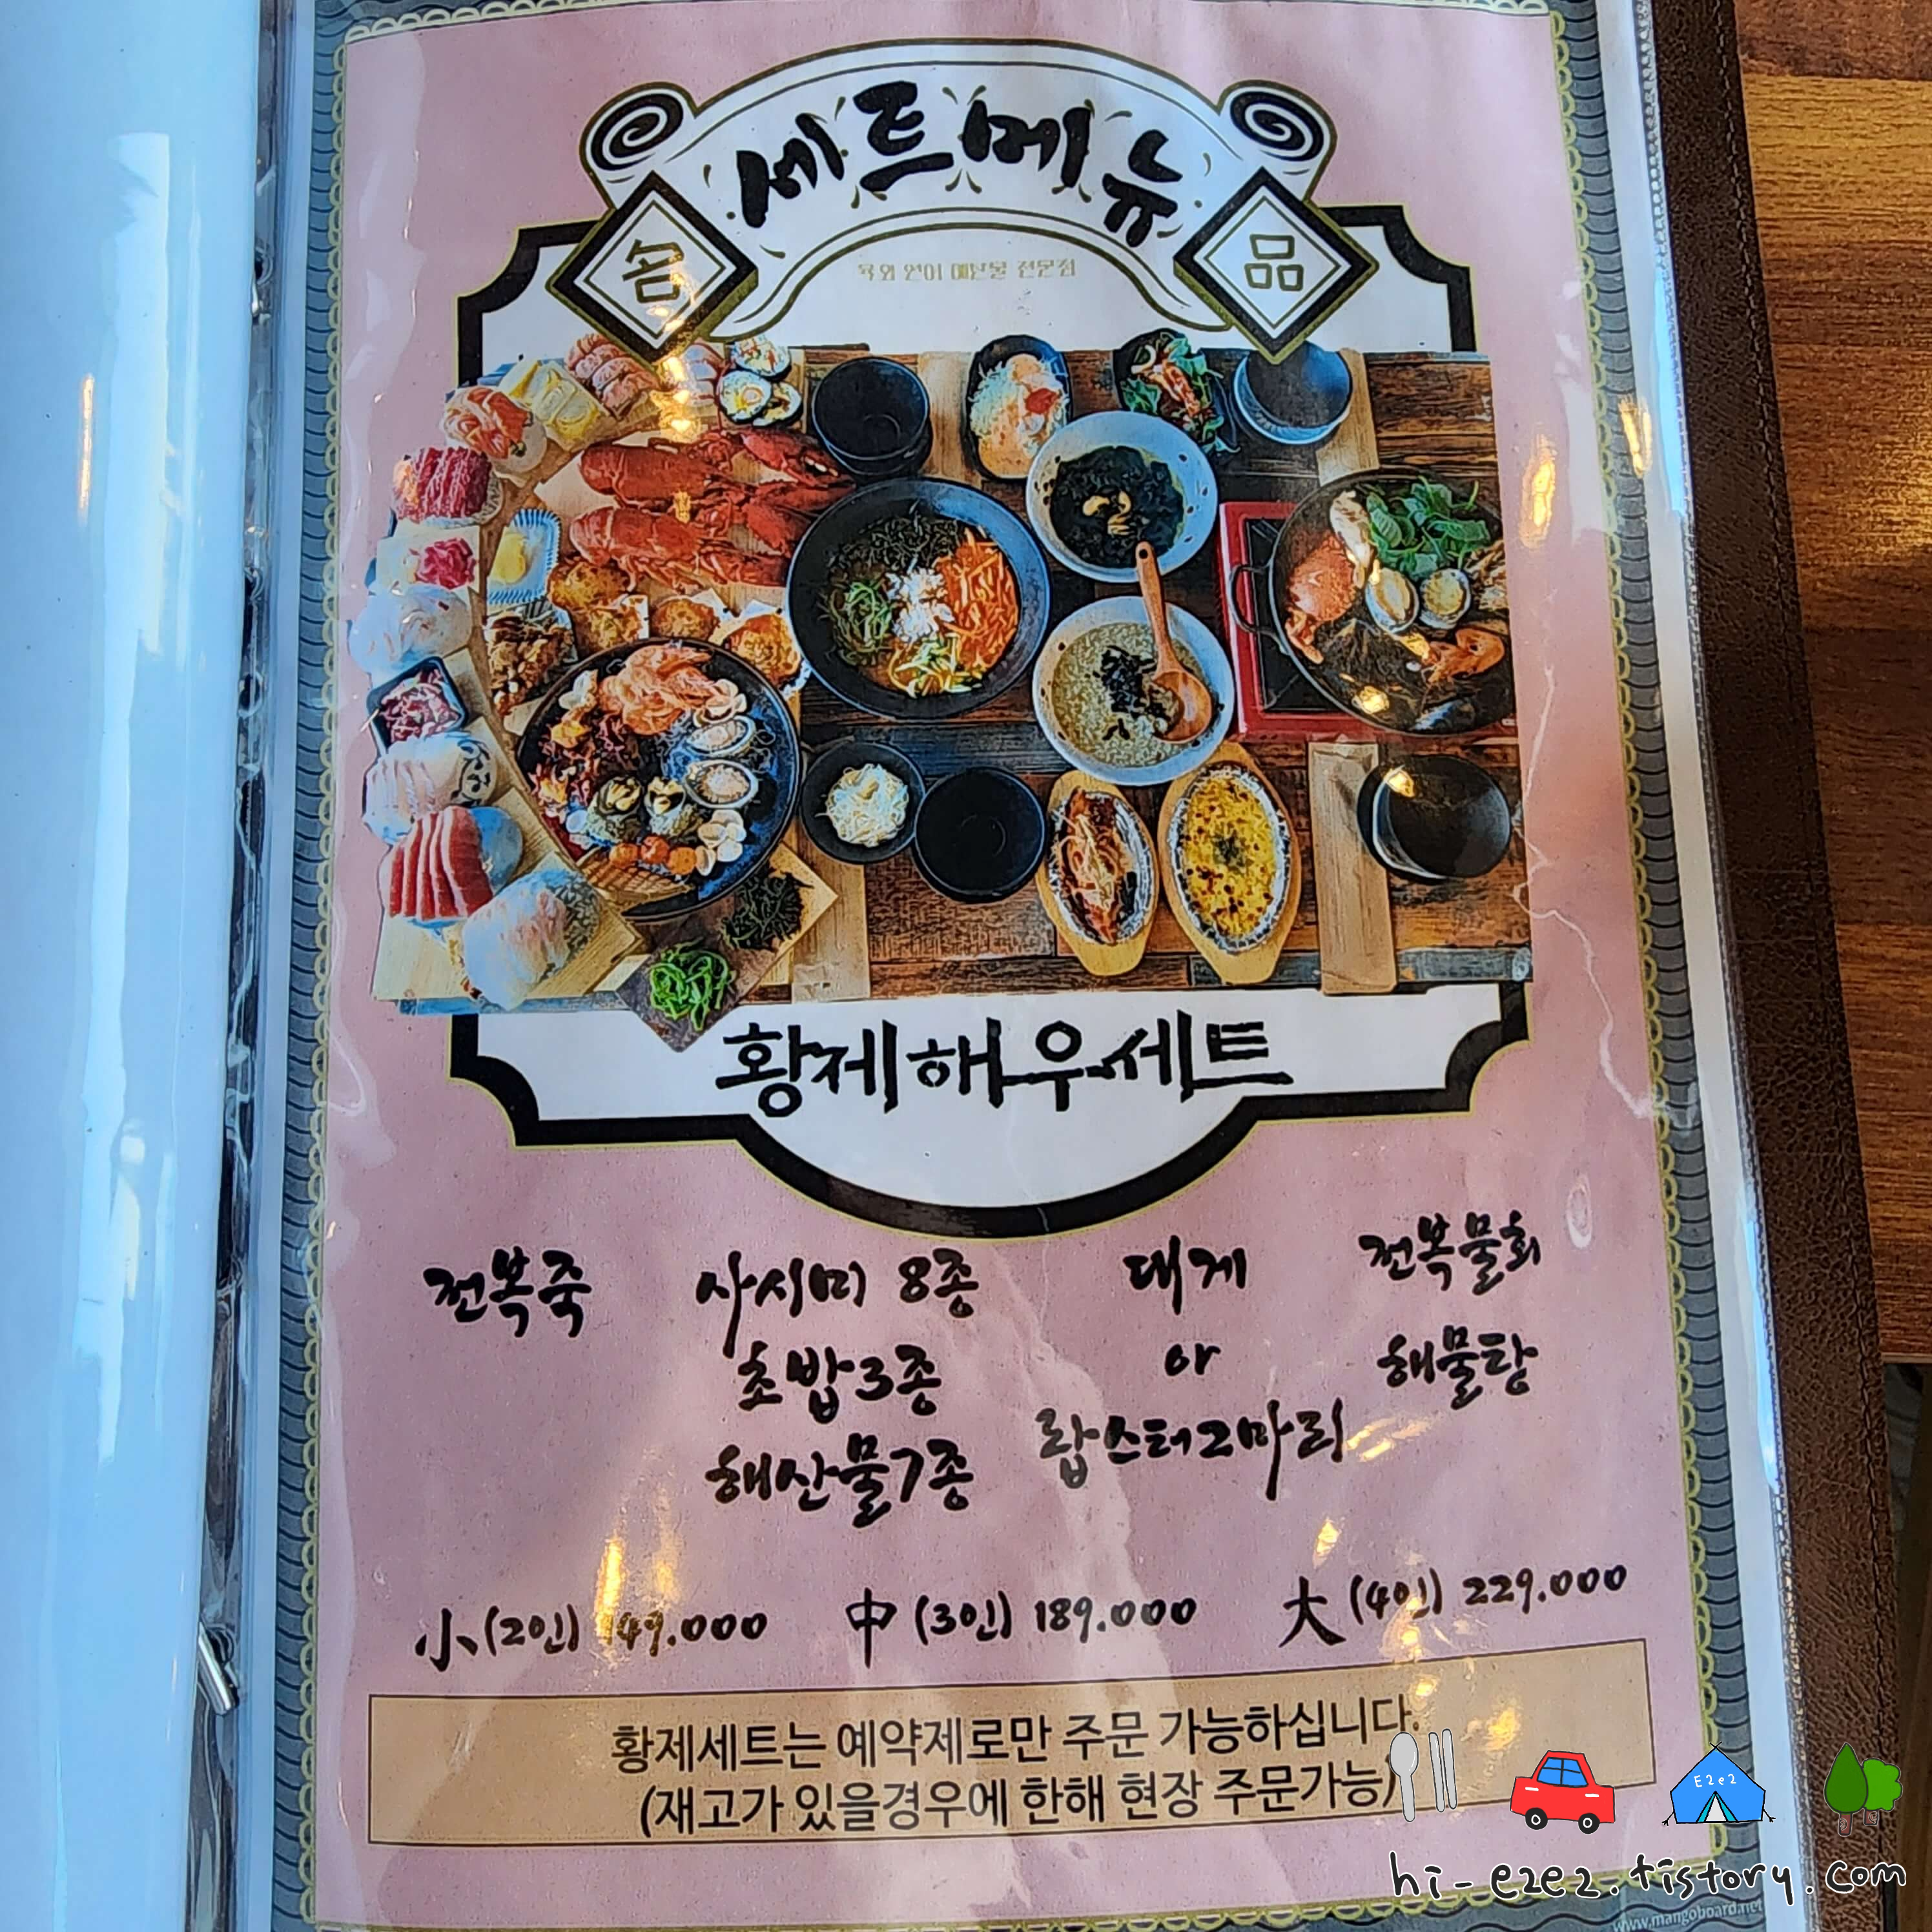 세트메뉴
名 品
육회 연어 해산물 전문점
황제해우세트
전복죽 사시미 8종 대게 전복물회
초밥3종 or 해물탕
해산물7종 랍스터2마리
小(2인) 149.000 中(3인) 189.000 大(4인) 229.000
황제세트는 예약제로만 주문 가능하십니다.
(재고가 있을경우에 한해 현장 주문가능)
E2e2
hi-e2e2.tistory.com
www.mangoboard.net